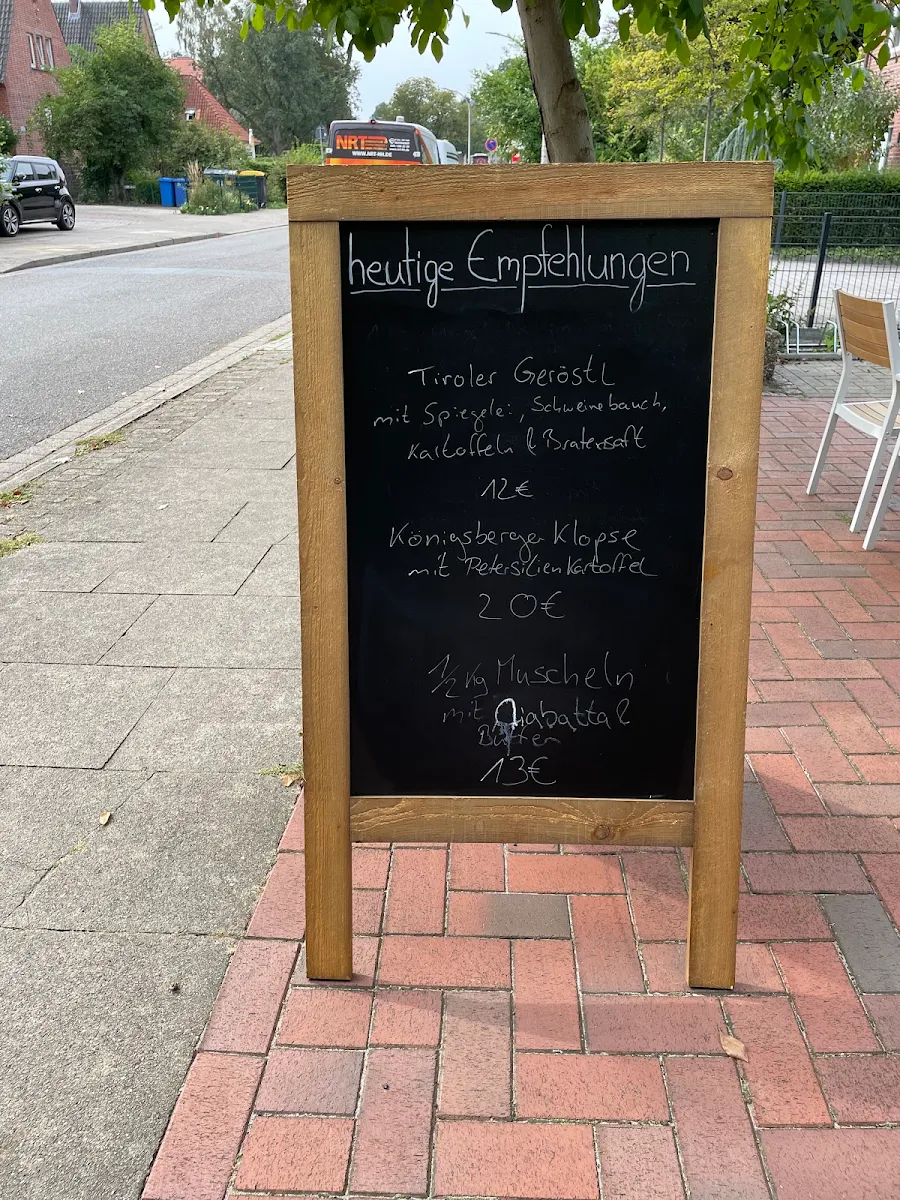 NRT
heutige Empfehlungen
Tiroler Geröstl
mit Spiegelei, Schweinebauch,
Kartoffeln & Bratensaft
12€
Königsberger Klopse
mit Petersilienkartoffel
20€
1/2 kg Muscheln
mit Ciabatta &
Butter
13€